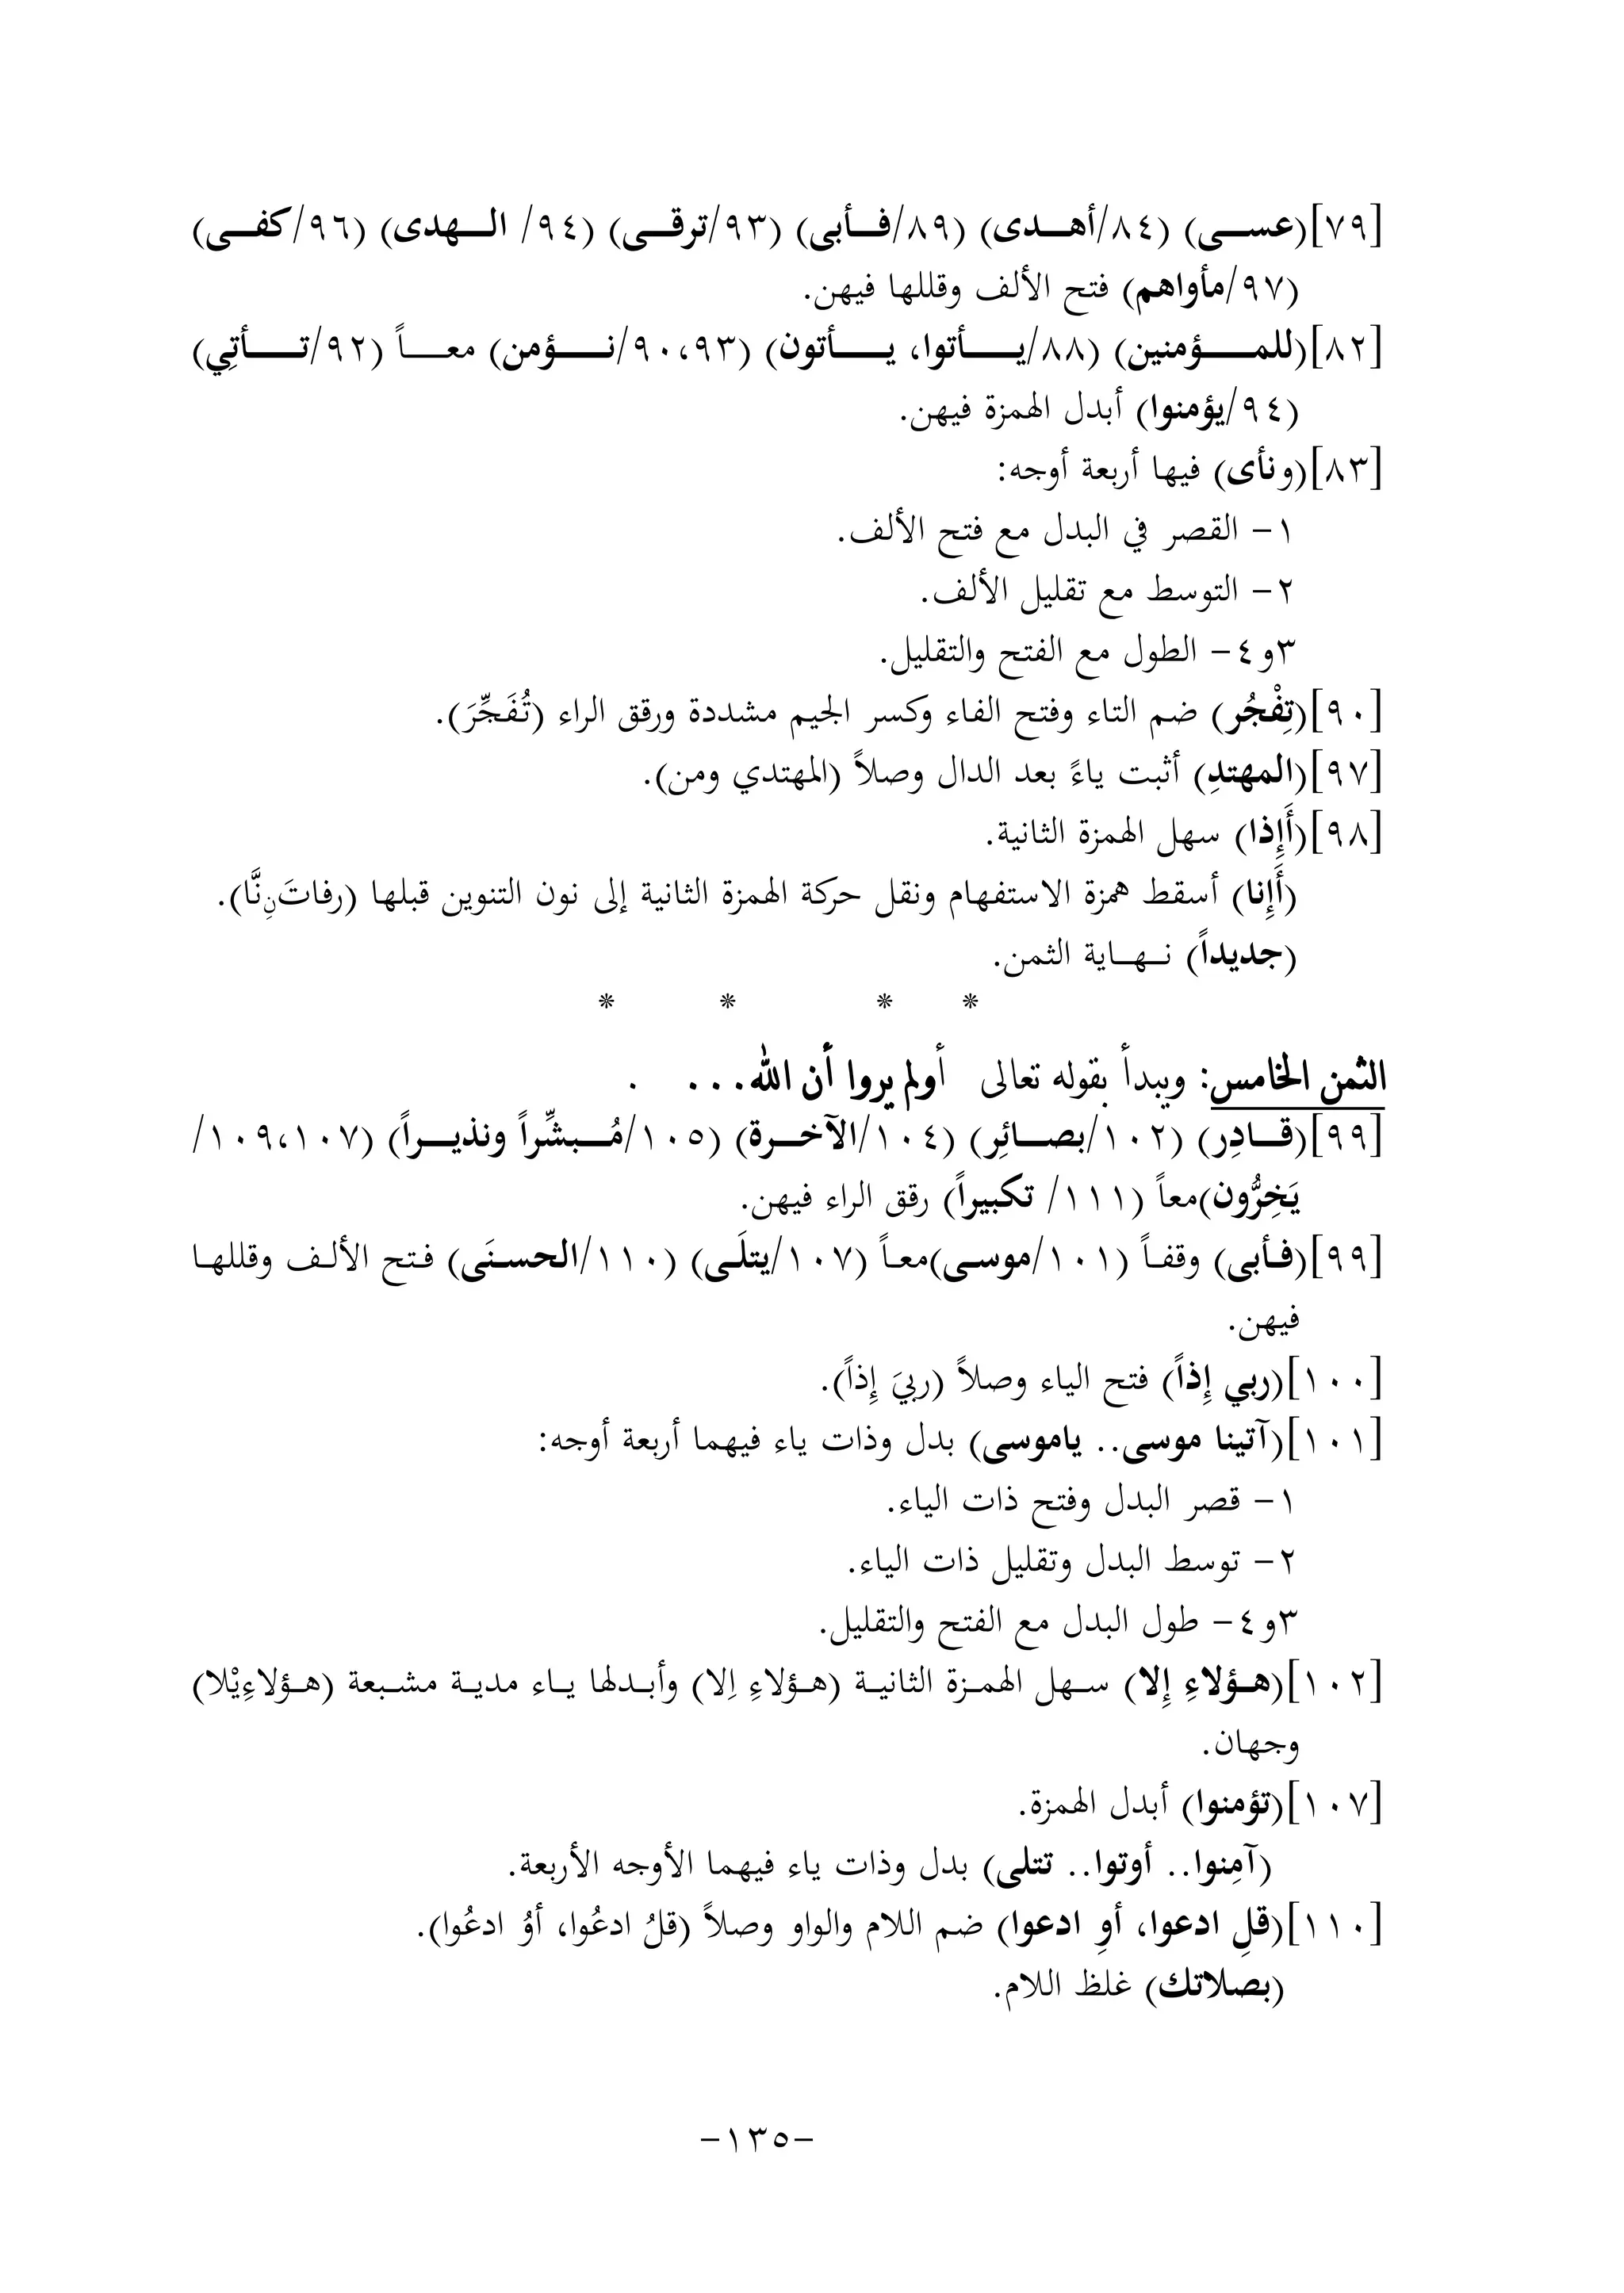 [٧٩](عســـى) (٨٤/أهـــدى) (٨٩/فـــأبى) (٩٣/ترقـــى) (٩٤/ الـــهدى) (٩٦/كفـــى)
(٩٧/مأواهم) فتح الألف وقللها فيهن.
[٨٢](للمـــؤمنين) (٨٨/يـــأتوا، يـــأتون) (٩٠،٩٣/نـــؤمن) معـــاً (٩٢/تـــأتِي)
(٩٤/يؤمنوا) أبدل الهمزة فيهن.
[٨٣](ونأى) فيها أربعة أوجه:
١- القصر في البدل مع فتح الألف.
٢- التوسط مع تقليل الألف.
٣و٤- الطول مع الفتح والتقليل.
[٩٠](تِفْجُر) ضم التاء وفتح الفاء وكسر الجيم مشددة ورقق الراء (تُفَجِّرَ).
[٩٧](المهتدِ) أثبت ياءً بعد الدال وصلاً (المهتدي ومن).
[٩٨](أَإِذا) سهل الهمزة الثانية.
(أَإِنا) أسقط همزة الاستفهام ونقل حركة الهمزة الثانية إلى نون التنوين قبلها (رفاتَنِنَّا).
(جديداً) نـهـاية الثمن.
* * * *
الثمن الخامس: ويبدأ بقوله تعالى أولم يروا أن الله... .
[٩٩](قـــادِر) (١٠٢/بصـــائِر) (١٠٤/الآخـــرة) (١٠٥/مُـــبشِّراً ونذيـــراً) (١٠٧،١٠٩/
يَخِرُّون)معاً (١١١/ تكبيراً) رقق الراء فيهن.
[٩٩](فـأبى) وقفـاً (١٠١/موسـى)معـاً (١٠٧/يتلَـى) (١١٠/الحسـنَى) فـتح الألـف وقللهـا
فيهن.
[١٠٠](ربي إِذاً) فتح الياء وصلاً (ربيَ إِذاً).
[١٠١](آتينا موسى.. ياموسى) بدل وذات ياء فيهما أربعة أوجه:
١- قصر البدل وفتح ذات الياء.
٢- توسط البدل وتقليل ذات الياء.
٣و٤- طول البدل مع الفتح والتقليل.
[١٠٢](هـؤلاءِ إِلا) سـهل الهمـزة الثانيـة (هـؤلاءِ اِلا) وأبـدلها يـاء مديـة مشـبعة (هـؤلاءِيْلا)
وجهان.
[١٠٧](تؤمنوا) أبدل الهمزة.
(آمِنوا.. أوتوا.. تتلى) بدل وذات ياء فيهما الأوجه الأربعة.
[١١٠](قلِ ادعوا، أوِ ادعوا) ضم اللام والواو وصلاً (قلُ ادعُوا، أوُ ادعُوا).
(بصلاتك) غلظ اللام.
-١٣٥-